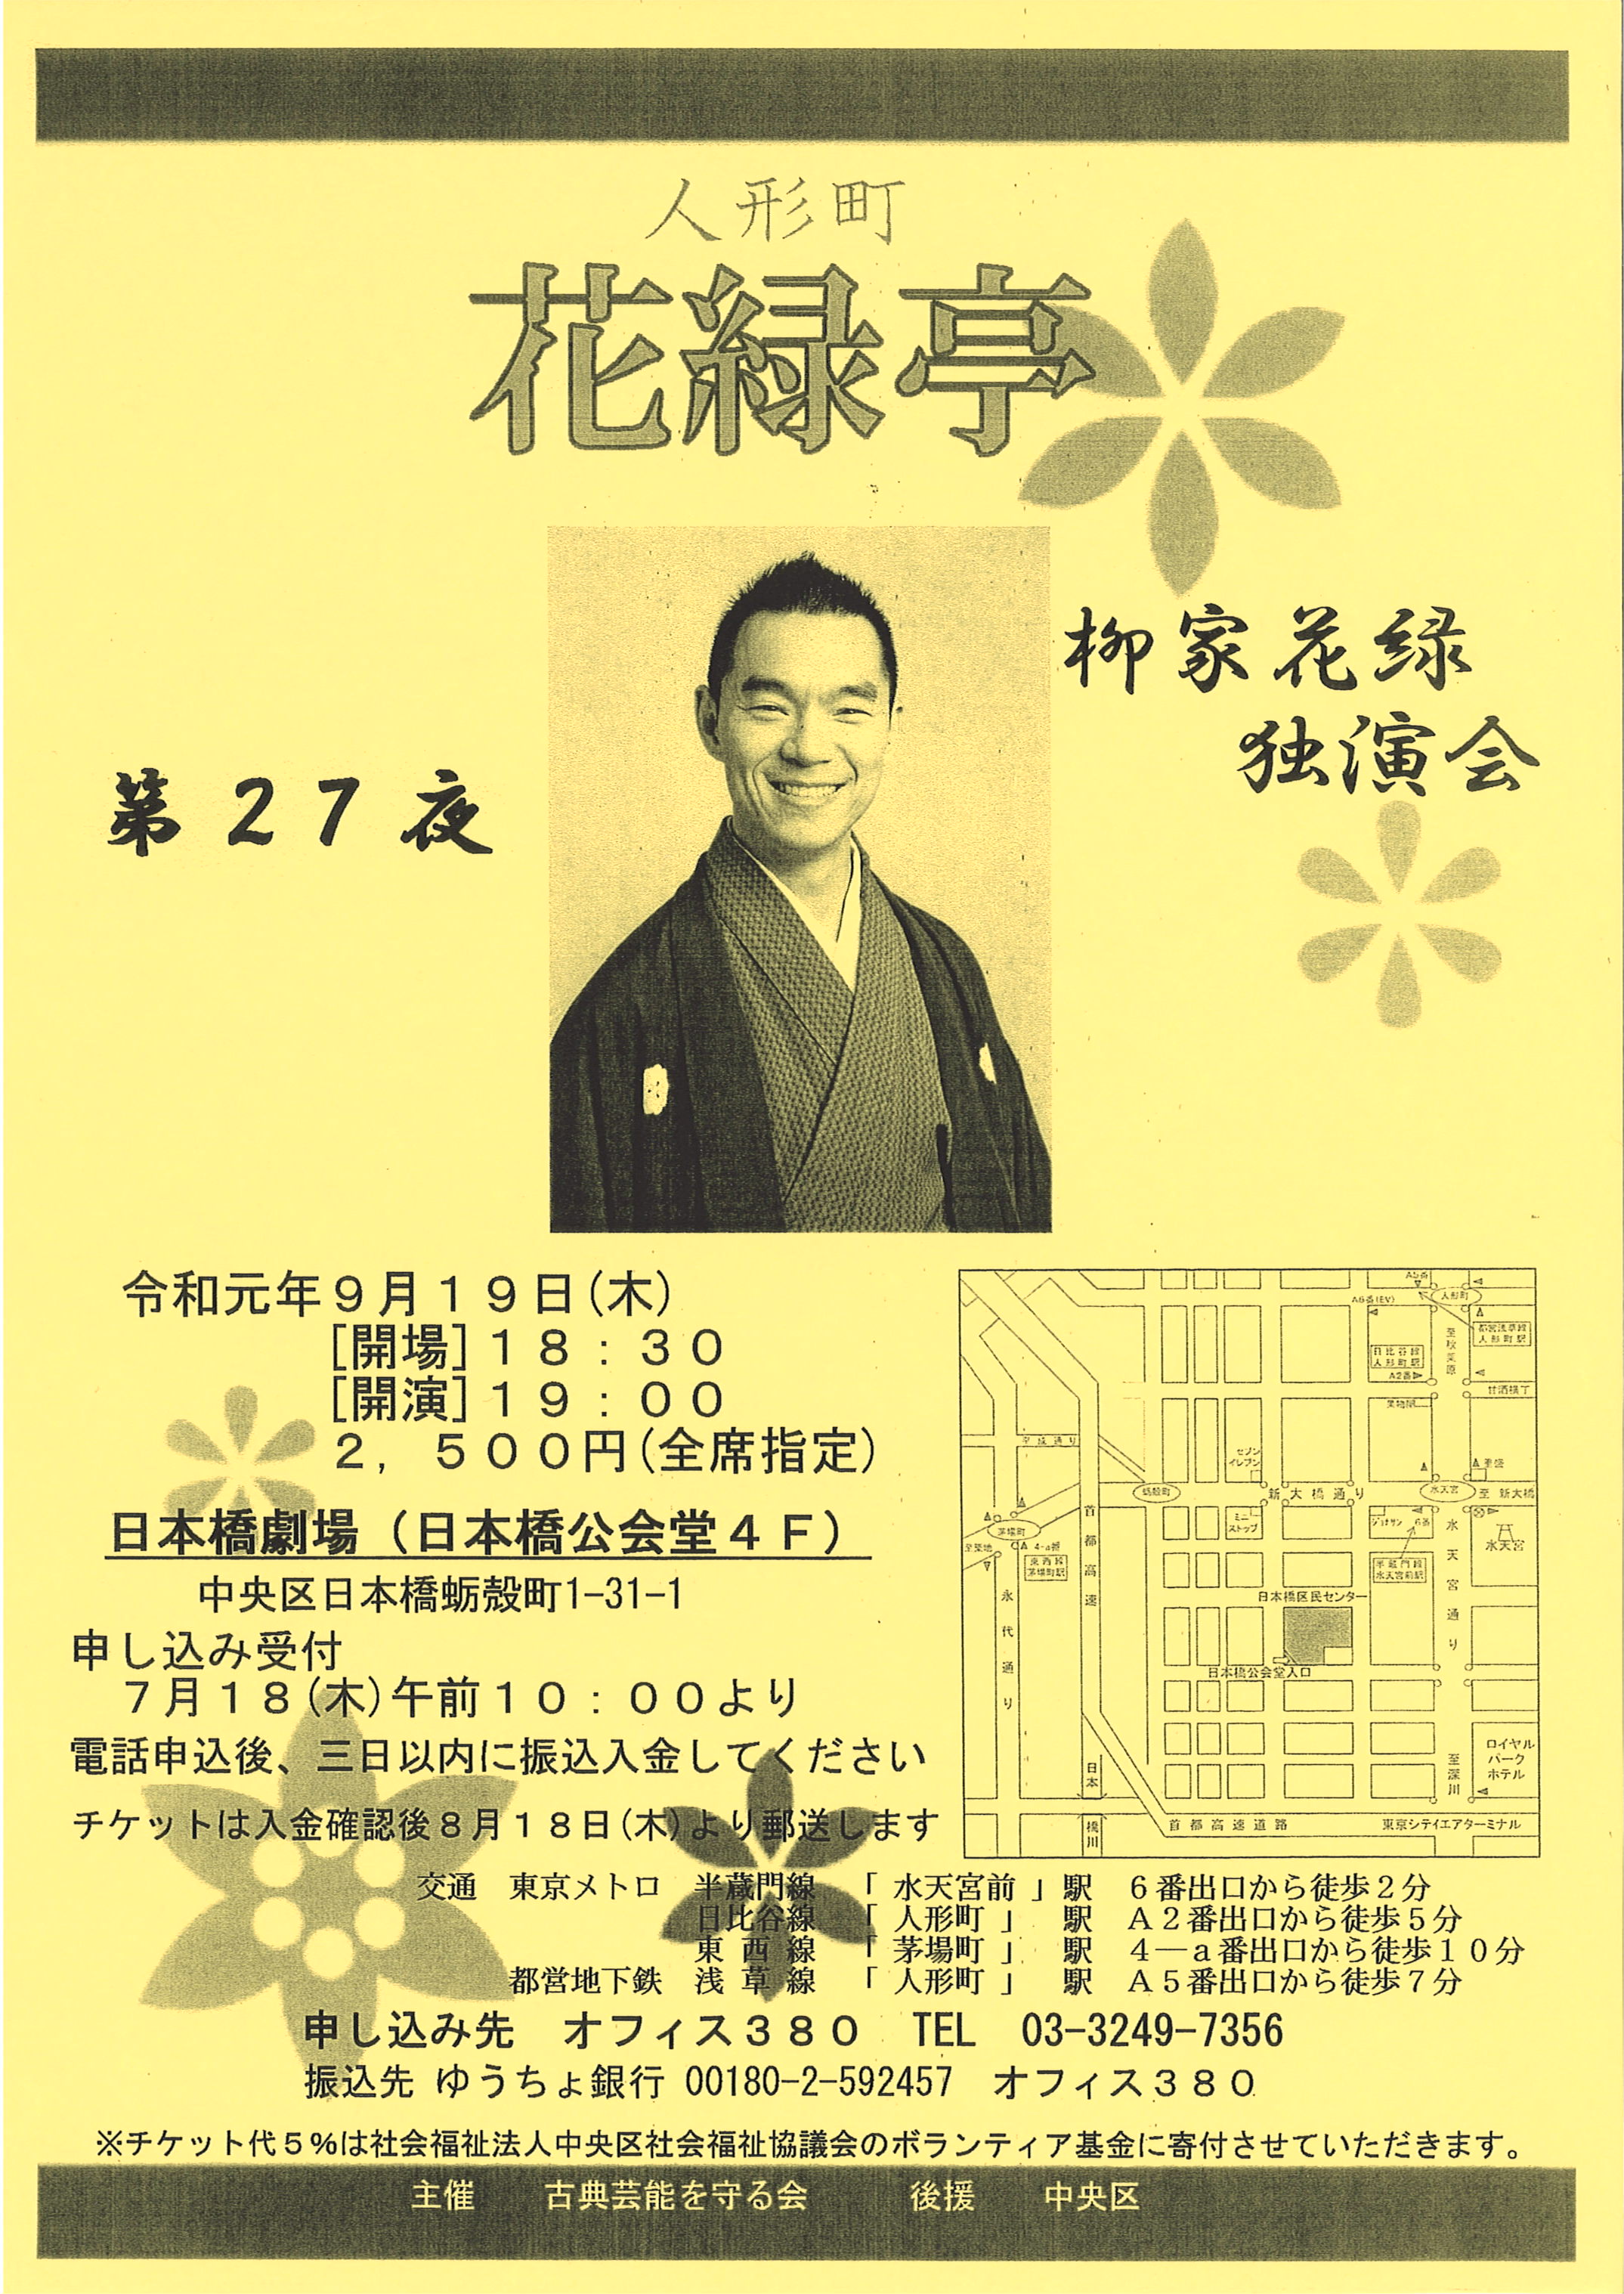 人形町
花緑亭
柳家花緑
独演会
第27夜
令和元年9月19日(木)
[開場]18:30
[開演]19:00
2,500円(全席指定)
日本橋劇場(日本橋公会堂4F)
中央区日本橋蛎殻町1-31-1
申し込み受付
7月18(木)午前10:00より
電話申込後、三日以内に振込入金してください
チケットは入金確認後8月18日(木)より郵送します
A5番
人形町
A6番(EV)
都営浅草線
人形町駅
至秋葉原
日比谷線
人形町駅
A2番
甘酒横丁
セブン
イレブン
蛎殻町
新大橋通り
水天宮
至 新大橋
ミニ
ストップ
6番
水天宮
茅場町
4-a番
東西線
茅場町駅
首都高速
半蔵門線
水天宮前駅
水天宮通り
永代通り
日本橋区民センター
日本橋公会堂入口
ロイヤル
パーク
ホテル
至深川
日本
橋川
首都高速道路
東京シティエアターミナル
交通 東京メトロ 半蔵門線 「水天宮前」駅 6番出口から徒歩2分
日比谷線 「人形町」 駅 A2番出口から徒歩5分
東西線 「茅場町」 駅 4―a番出口から徒歩10分
都営地下鉄 浅草線 「人形町」 駅 A5番出口から徒歩7分
申し込み先 オフィス380 TEL 03-3249-7356
振込先 ゆうちょ銀行 00180-2-592457 オフィス380
※チケット代5%は社会福祉法人中央区社会福祉協議会のボランティア基金に寄付させていただきます。
主催 古典芸能を守る会 後援 中央区